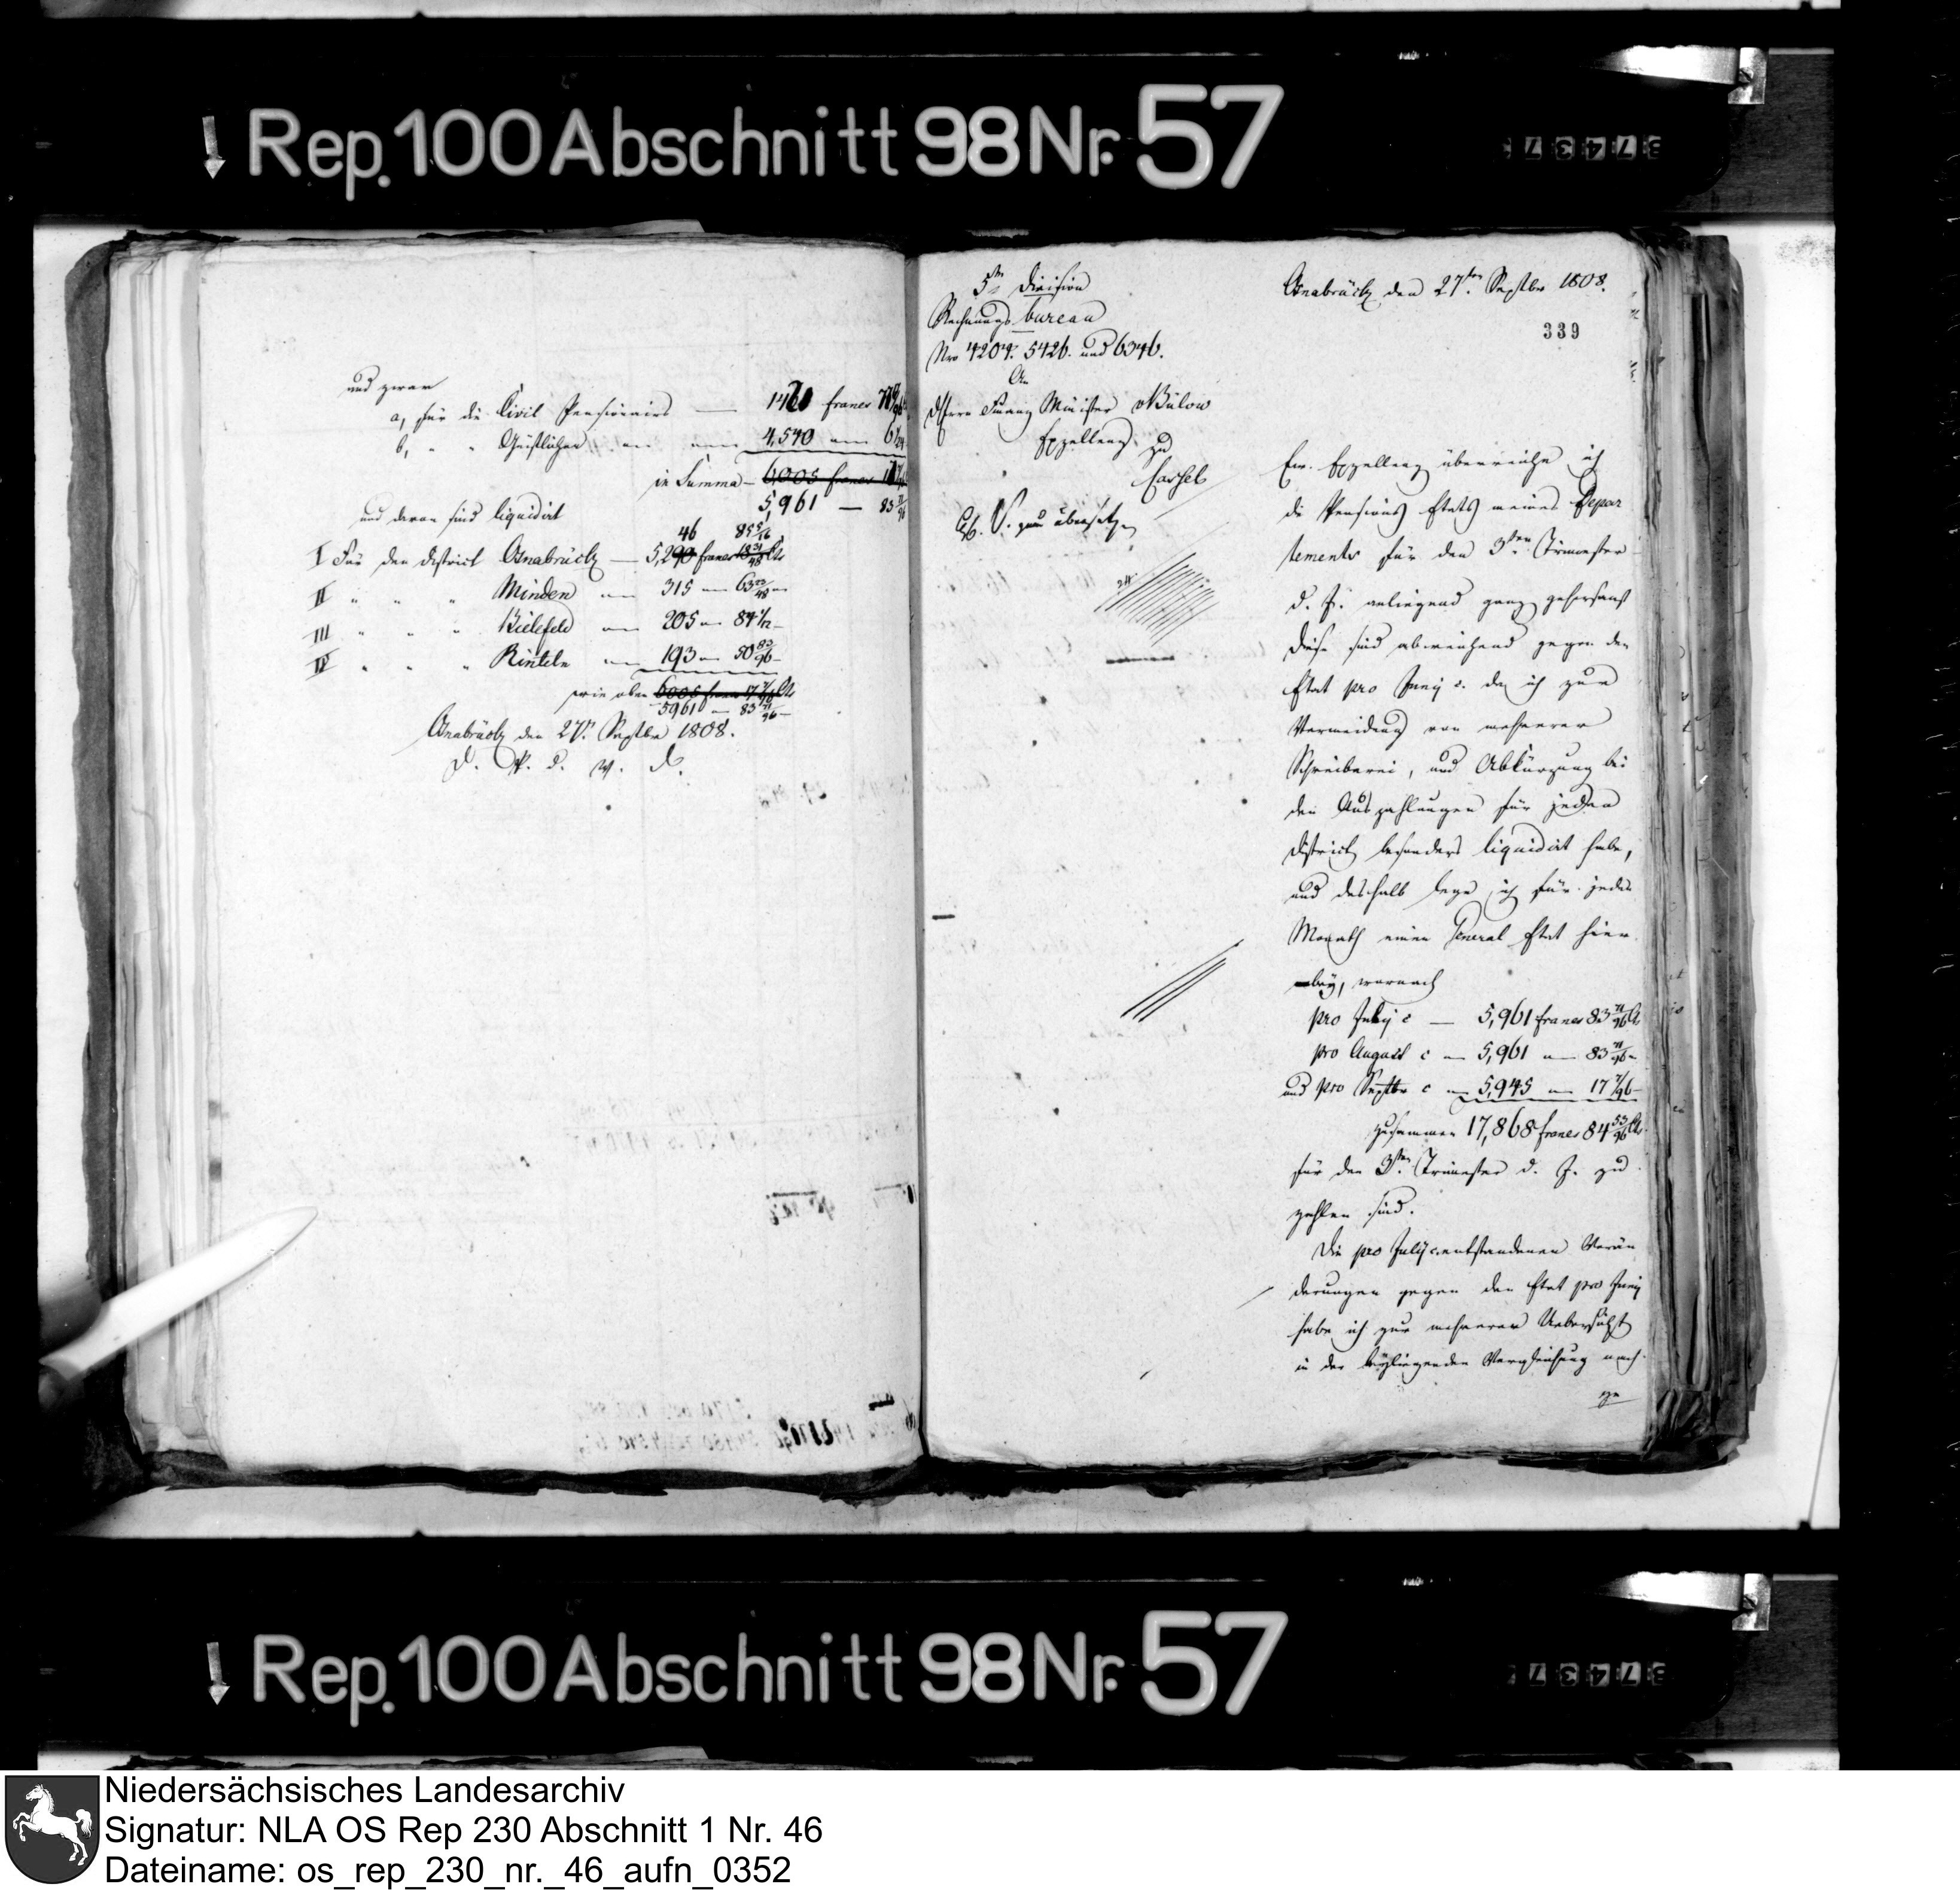 Rep. 100 Abschnitt 98 Nr. 57
37437
und zwar
a, für die Civil Pensionairs — francs
b, " " Geistlichen 4,540
in Summa — 6,005 francs
5,961 — 83 71/96
und davon sind liquidirt
46 85
I Für den District Osnabrück — 5,290 francs
II " " " Minden 315 — 63 23/48
III " " " Bielefeld 205 — 84 1/12
IV " " " Rinteln 193 — 50 83/96
wie oben 6005 francs 17 Cts
5961 — 83 71/96
Osnabrück den 27t. Septbr 1808.
D. P. d. W. D.
5te Division
Rechnungs bureau
Nro 4204. 5426. und 6346.
An
des Herrn Finanz Minister v Bülow
Exzellenz zu
Cassel
zu übersetzen
Osnabrück den 27ten Septbr 1808.
339
Ew. Exzellenz überreiche ich
die Pensions Etats meines Depar
tements für den 3ten Trimester
d. J. anliegend ganz gehorsamst
Diese sind abweichend gegen den
Etat pro Juny c. da ich zur
Vermeidung von mehrerer
Schreiberei, und Abkürzung bei
den Auszahlungen für jeden
District besonders liquidirt habe,
und deshalb lege ich für jeden
Monath einen General Etat hier
bey, wornach
pro July c — 5,961 francs 83 71/96 Cts
pro August c — 5,961 — 83 71/96
und pro Septbr c — 5,945 — 17 7/96
zusammen 17,868 francs 84 53/96 Cts
für den 3ten Trimester d. J. zu
zahlen sind.
Die pro July c. entstandenen Verän
derungen gegen den Etat pro Juny
habe ich zur mehreren Uebersicht
in der beyliegenden Vergleichung nach
Rep. 100 Abschnitt 98 Nr. 57
37437
Niedersächsisches Landesarchiv
Signatur: NLA OS Rep 230 Abschnitt 1 Nr. 46
Dateiname: os_rep_230_nr._46_aufn_0352